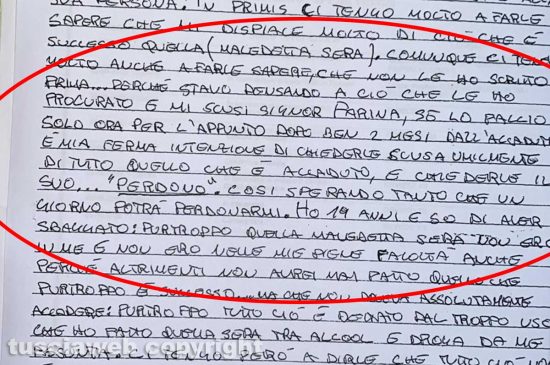 SUA PERSONA: IN PRIMIS CI TENGO MOLTO A FARLE
SAPERE CHE MI DISPIACE MOLTO DI CIÒ CHE È
SUCCESSO QUELLA (MALEDETTA SERA). COMUNQUE CI TENGO
MOLTO ANCHE A FARLE SAPERE, CHE NON LE HO SCRITTO
PRIMA... PERCHÉ STAVO PENSANDO A CIÒ CHE LE HO
PROCURATO E MI SCUSI SIGNOR FARINA, SE LO FACCIO
SOLO ORA PER L'APPUNTO DOPO BEN 2 MESI DALL'ACCADUTO
È MIA FERMA INTENZIONE DI CHIEDERLE SCUSA UMILMENTE
DI TUTTO QUELLO CHE È ACCADUTO, E CHIEDERLE IL
SUO... "PERDONO". COSI SPERANDO TANTO CHE UN
GIORNO POTRÀ PERDONARMI. HO 19 ANNI E SO DI AVER
SBAGLIATO: PURTROPPO QUELLA MALEDETTA SERA NON ERO
IN ME E NON ERO NELLE MIE PIENE FACOLTÀ ANCHE
PERCHÉ ALTRIMENTI NON AUREI MAI FATTO QUELLO CHE
PURTROPPO È SUCCESSO... MA CHE NON DOVEVA ASSOLUTAMENTE
ACCADERE: PURTROPPO TUTTO CIÒ È DERIVATO DAL TROPPO USO
CHE HO FATTO QUELLA SERA TRA ALCOOL E DROGA DA ME
ASSUNTA. CI TENGO PERÒ A DIRLE CHE TUTTO CIÒ NON
tusciaweb copyright